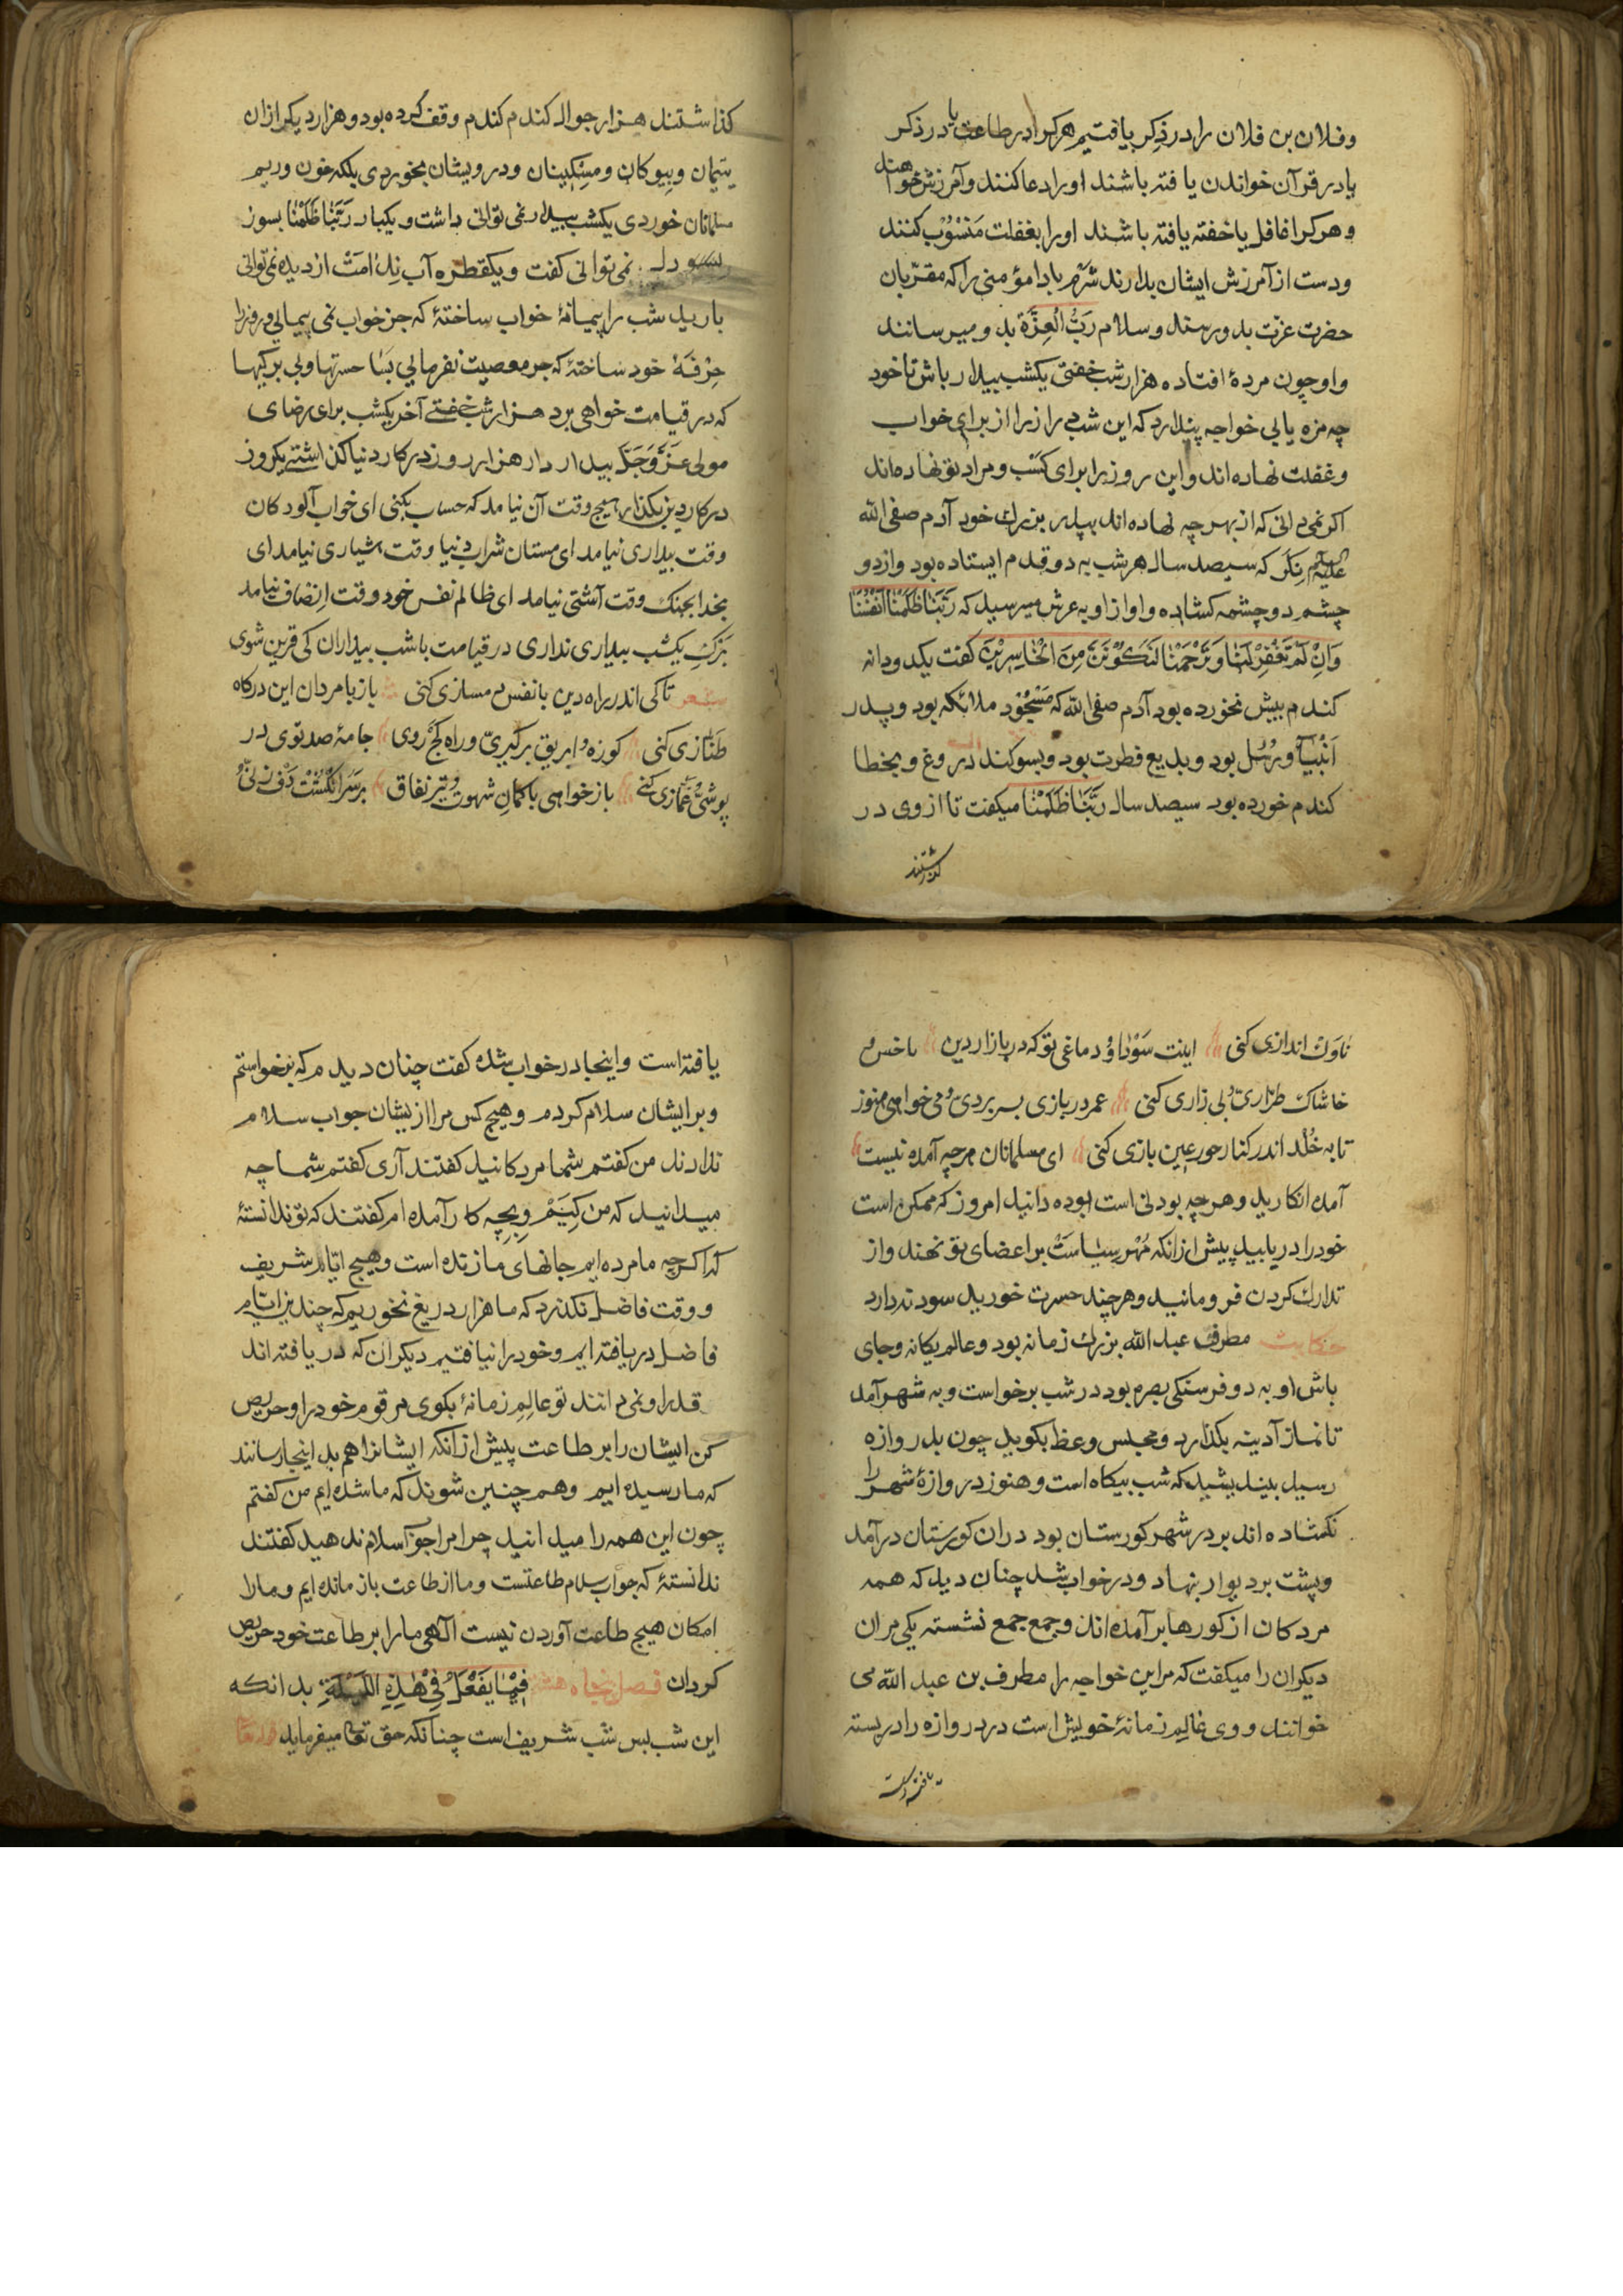 وفلان بن فلان را در ذکر یافتیم هر کرا در طاعت یا در ذکر
یا در قرآن خواندن یافته باشند او را دعا کنند و آمرزش خواهند
و هر کرا غافل یا خفته یافته باشند او را بغفلت منسوب کنند
و دست از آمرزش ایشان بدارند شرم بادا مؤمنی را که مقربان
حضرت عزت بدو رسند و سلام رَبُّ الْعِزَّة بدو میرسانند
و او چون مردهٔ افتاده هزار شب خفتی یکشب بیدار باش تا خود
چه مزه یابی خواجه پندارد که این شب دراز را از برای خواب
و غفلت نهاده اند و این روز را برای کسب و مراد تو نهاده اند
اکر نمی دانی که از بهر چه نهاده اند بپدر بزرك خود آدم صفی الله
علیه السلم نکر که سیصد سال هر شب به دو قدم ایستاده بود و از دو
چشم دو چشمه کشاده و اواز او به عرش میرسید که رَبَّنَا ظَلَمْنَا اَنْفُسَنَا
وَاِنْ لَمْ تَغْفِرْ لَنَا وَتَرْحَمْنَا لَنَكُوْنَنَّ مِنَ الْخَاسِرِیْنَ کفت یکدو دانه
کندم بیش نخورده بود آدم صفی الله که مَسْجُوْد ملائکه بود و پدر
اَنْبِیَآ و رُسُل بود و بدیع فطرت بود و بسوکند دروغ و بخطا
کندم خورده بود سیصد سال رَبَّنَا ظَلَمْنَا میکفت تا از وی در
کذاشتند
کذاشتند هزار جوال کندم کندم وقف کرده بود و هزار دیکر از ان
یتیمان و بیوکان و مسکینان و درویشان بخوردی بلکه خون و ریم
مسلمانان خوردی یکشب بیدار نمی توانی داشت و یکبار رَبَّنَا ظَلَمْنَا بسوز
دل نمی توانی کفت و یکقطره آب نِدَامَتْ از دیده نمی توانی
بارید شب را پیمانهٔ خواب ساختهٔ که جز خواب نمی پیمایی و روز را
حِرْفَهٔ خود ساختهٔ که جز معصیت نفرمایی بَسَا حسرتها و بی برکیها
که در قیامت خواهی برد هزار شب خفتی آخر یکشب برای رضای
مولی عَزَّ وَجَلَّ بیدار دار هزار روز در کار دنیا کذاشتی یکروز
در کار دین بکذار هیچ وقت آن نیامد که حساب بکنی ای خواب آلودکان
وقت بیداری نیامد ای مستان شراب دنیا وقت هشیاری نیامد ای
بخدا بجنك وقت آشتی نیامد ای ظالم نفس خود وقت اِنْصَاف نیامد
بَرْكِ یکشب بیداری نداری در قیامت با شب بیداران کی قرین شوی
شعر تا کی اندر راه دین با نفس دمسازی کنی یا زبا مردان این درکاه
طَنَّازی کنی کوزه و ابریق برکیری و راه کج روی جامهٔ صد توی در
پوشی و غَمَّازی کنی باز خواهی با کمان شهوت و تیر نفاق بر سر انکشت دف زنی و
ناوك اندازی کنی اینت سَوْدا و دماغی تو که در بازار دین با خس و
خاشاك طرّاری و بی زاری کنی عمر در بازی بسر بردی و می خواهی هنوز
تا به خُلْد اندر کنار حور عین بازی کنی ای مسلمانان هر چه آمده نیست
آمده انکارید و هر چه بودنی است بوده دانید امروز که ممکن است
خود را دریابید پیش از انکه مُهْرِ سِیَاسَتْ بر اعضای تو نهند و از
تدارك کردن فرو مانید و هر چند حسرت خورید سود ندارد
حکایت مطرف عبد الله بزرك زمانه بود و عالم یکانه و جای
باش او به دو فرسنکی بصره بود در شب برخواست و به شهر آمد
تا نماز آدینه بکذارد و مجلس وعظ بکوید چون بدروازه
رسید بیند بشید که شب بیکاه است و هنوز دروازهٔ شهر را
نکشاده اند بر در شهر کورستان بود در ان کورستان درآمد
و پشت بر دیوار بنهاد و در خواب شد چنان دید که همه
مردکان از کورها برآمده اند و جمع جمع نشسته یکی مران
دیکران را میکفت که مر این خواجه را مطرف بن عبد الله می
خوانند و وی عالِمِ زمانهٔ خویش است در دروازه را در بسته
یافته است
یافته است و اینجا در خواب شده کفت چنان دیدم که بخواستم
و بر ایشان سلام کردم و هیچ کس مرا از یشان جواب سلام
ندادند من کفتم شما مردکانید کفتند آری کفتم شما چه
میدانید که من کِیَیَمْ و بِچِه کار آمده ام کفتند که تو ندانستهٔ
که اکرچه ما مرده ایم جانهای ما زنده است و هیچ ایّام شریف
و وقت فاضل نکذرد که ما هزار دریغ نخوریم که چندین ایّام
فاضل دریافته ایم و خود را نیافتیم دیکران که دریافته اند
قدر او نمی دانند تو عالِمِ زمانهٔ بکوی مر قوم خود را و حریص
کن ایشان را بر طاعت پیش از انکه ایشانرا هم بد اینجا رسانند
که ما رسیده ایم و هم چنین شوند که ما شده ایم من کفتم
چون این همه را میدانید چرا مرا جواب سلام ندهید کفتند
ندانستهٔ که جواب سلام طاعتست و ما از طاعت باز مانده ایم و ما را
امکان هیچ طاعت آوردن نیست الٓهی ما را بر طاعت خود حریص
کردان فصل پنجاه هشتم فِیْمَا یَفْعَلُ فِیْ هٰذِهِ اللَّیْلَةِ بدانکه
این شب بس شب شریف است چنانکه حق تعا میفرماید قوله تعا